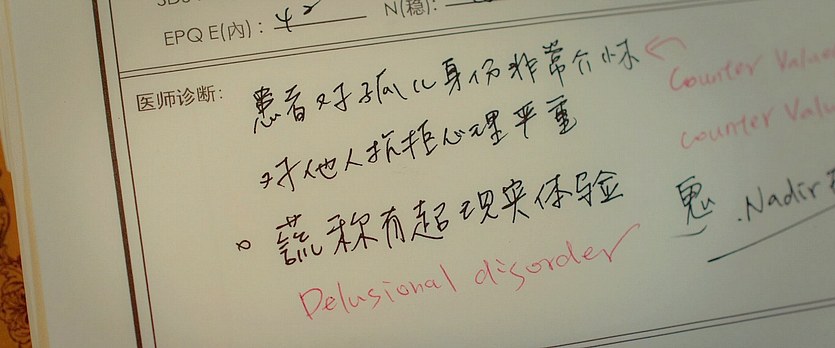 EPQ E(内): 42
N(稳):
医师诊断: 患者对孤儿身份非常介怀
Counter Value
对他人抗拒心理严重
Counter Valu
谎称有超现实体验
Nadir
Delusional disorder